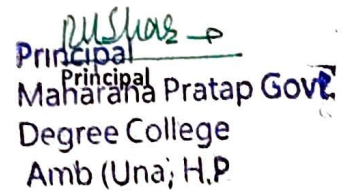 Principal
Principal
Maharana Pratap Govt.
Degree College
Amb (Una) H.P